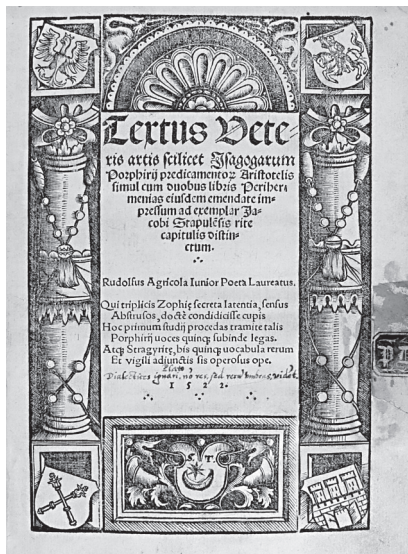 Textus Vete-
ris artis scilicet Isagogarum
Porphirij predicamentoꝝ Aristotelis
simul cum duobus libris Periher-
menias eiusdem emendate im-
pressum ad exemplar Ja-
cobi Stapulēsis rite
capitulis distin-
ctum.
Rudolfus Agricola Iunior Poeta Laureatus.
Qui triplicis Zophię secreta latentia, sensus
Abstrusos, doctè condidicisse cupis
Hoc primum studij procedas tramite talis
Porphirij uoces quinq; subinde legas.
Atq; Stragyritę, bis quinq; uocabula rerum
Et vigili adiunctis sis operosus ope.
Dialectices ignari, nō res, sed rerū umbras
1 5 2 2.